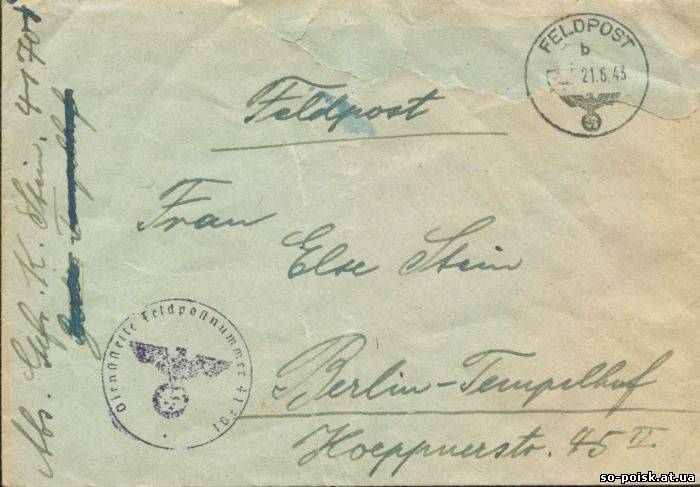 FELDPOST
b
21.6.43
Feldpost
Frau
Else Stein
Berlin-Tempelhof
Hoeppnerstr. 45 II.
Abs. Gefr. K. Stein, 41701
Dienststelle Feldpostnummer 41701
so-poisk.at.ua